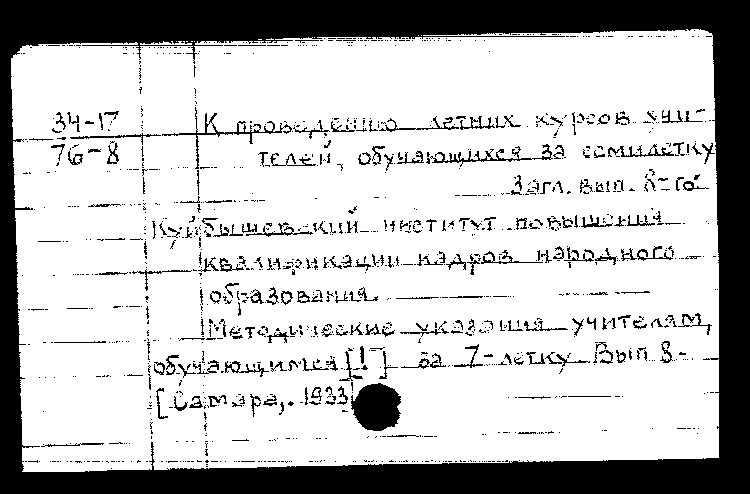 34-17
76-8
К проведению летних курсов учи-
телей, обучающихся за семилетку
Загл. вып. 8-го
Куйбышевский институт повышения
квалификации кадров народного
образования.
Методические указания учителям,
обучающимся [!] за 7-летку Вып 8-
[Самара, 1933